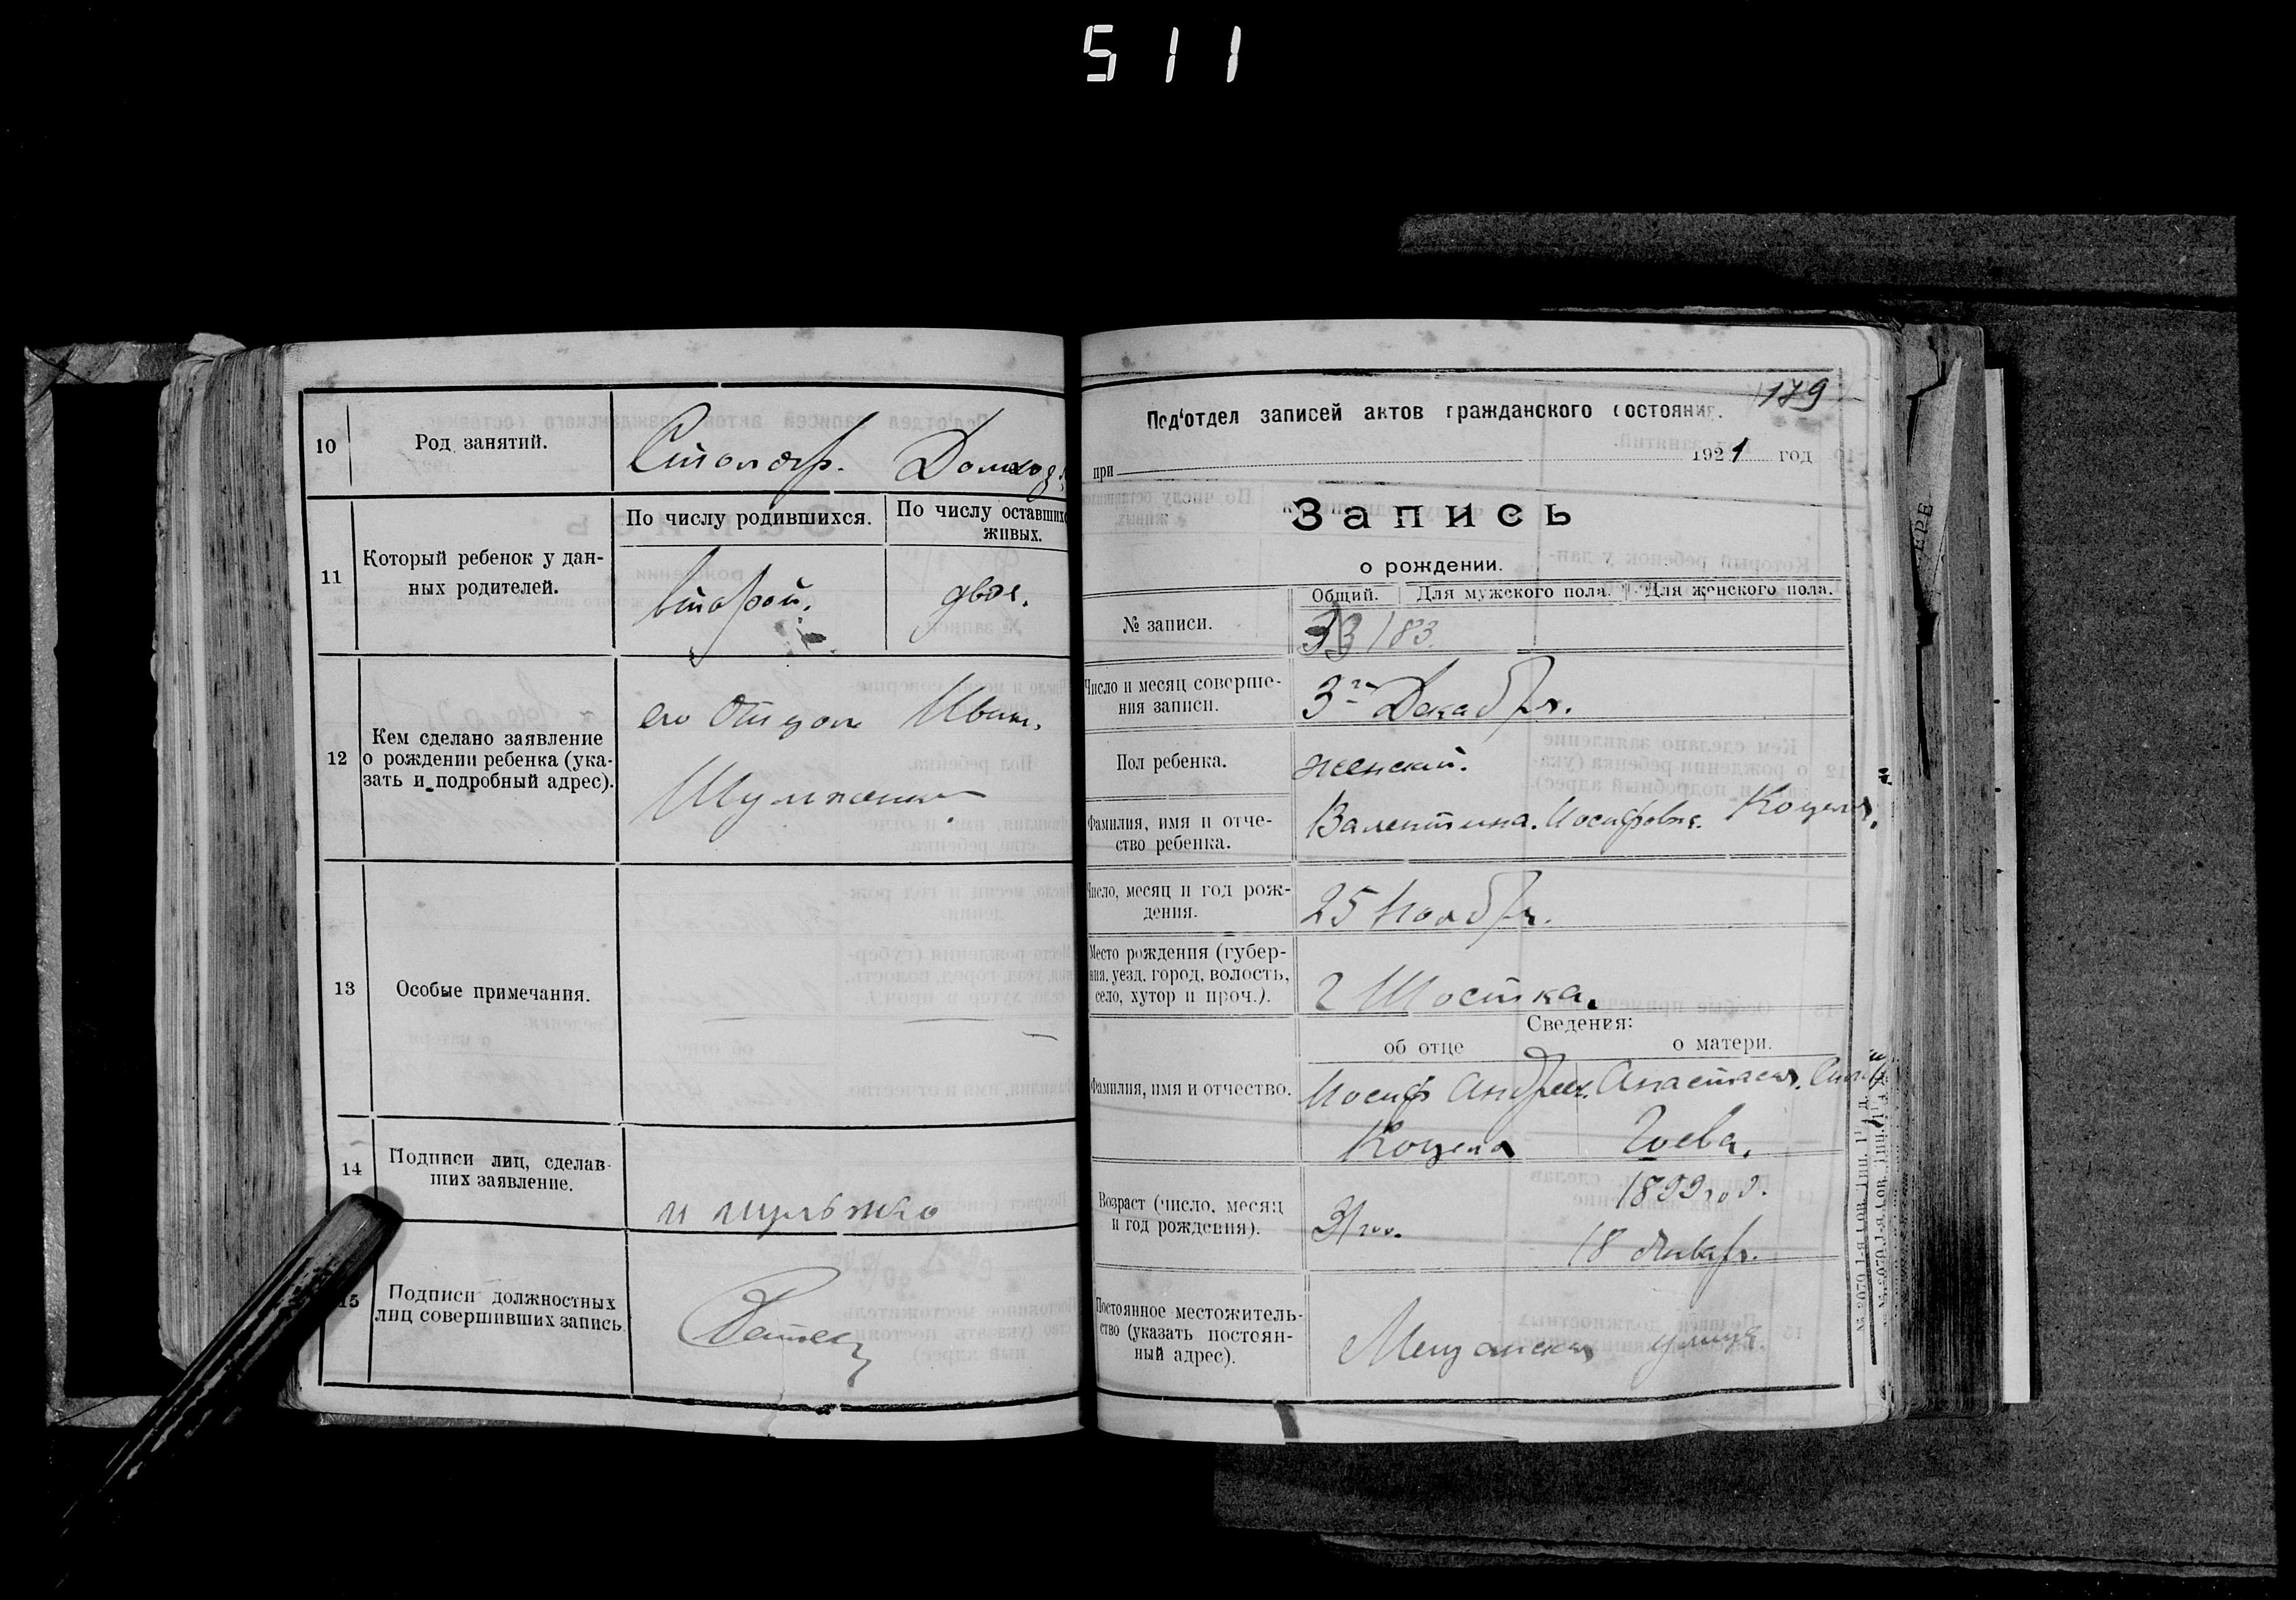 511
10 Род занятий. Столяр. Домохоз
11 Который ребенок у дан-
ных родителей.
По числу родившихся. По числу оставших
живых.
второй. двое.
12 Кем сделано заявление
о рождении ребенка (ука-
зать и подробный адрес).
его отцом Иван.
13 Особые примечания.
14 Подписи лиц, сделав-
ших заявление.
15 Подписи должностных
лиц совершивших запись
179
Под'отдел записей актов гражданского состояния.
при 1921 год
Запись
о рождении.
Общий. Для мужского пола. Для женского пола.
№ записи. 183.
Число и месяц соверше-
ния записи.
3го Декабря.
Пол ребенка. женский.
Фамилия, имя и отче-
ство ребенка.
Валентина. Иосифовна. Коцела.
Число, месяц и год рож-
дения.
25 Ноября.
Место рождения (губер-
ния, уезд, город, волость,
село, хутор и проч.).
г Шостка.
Сведения:
об отце о матери.
Фамилия, имя и отчество. Иосиф Андреев. Анастасия.
Коцела Гоева.
Возраст (число, месяц
и год рождения).
31 год. 1899 год.
18 Января.
Постоянное местожитель-
ство (указать постоян-
ный адрес).
Мещанская улица.